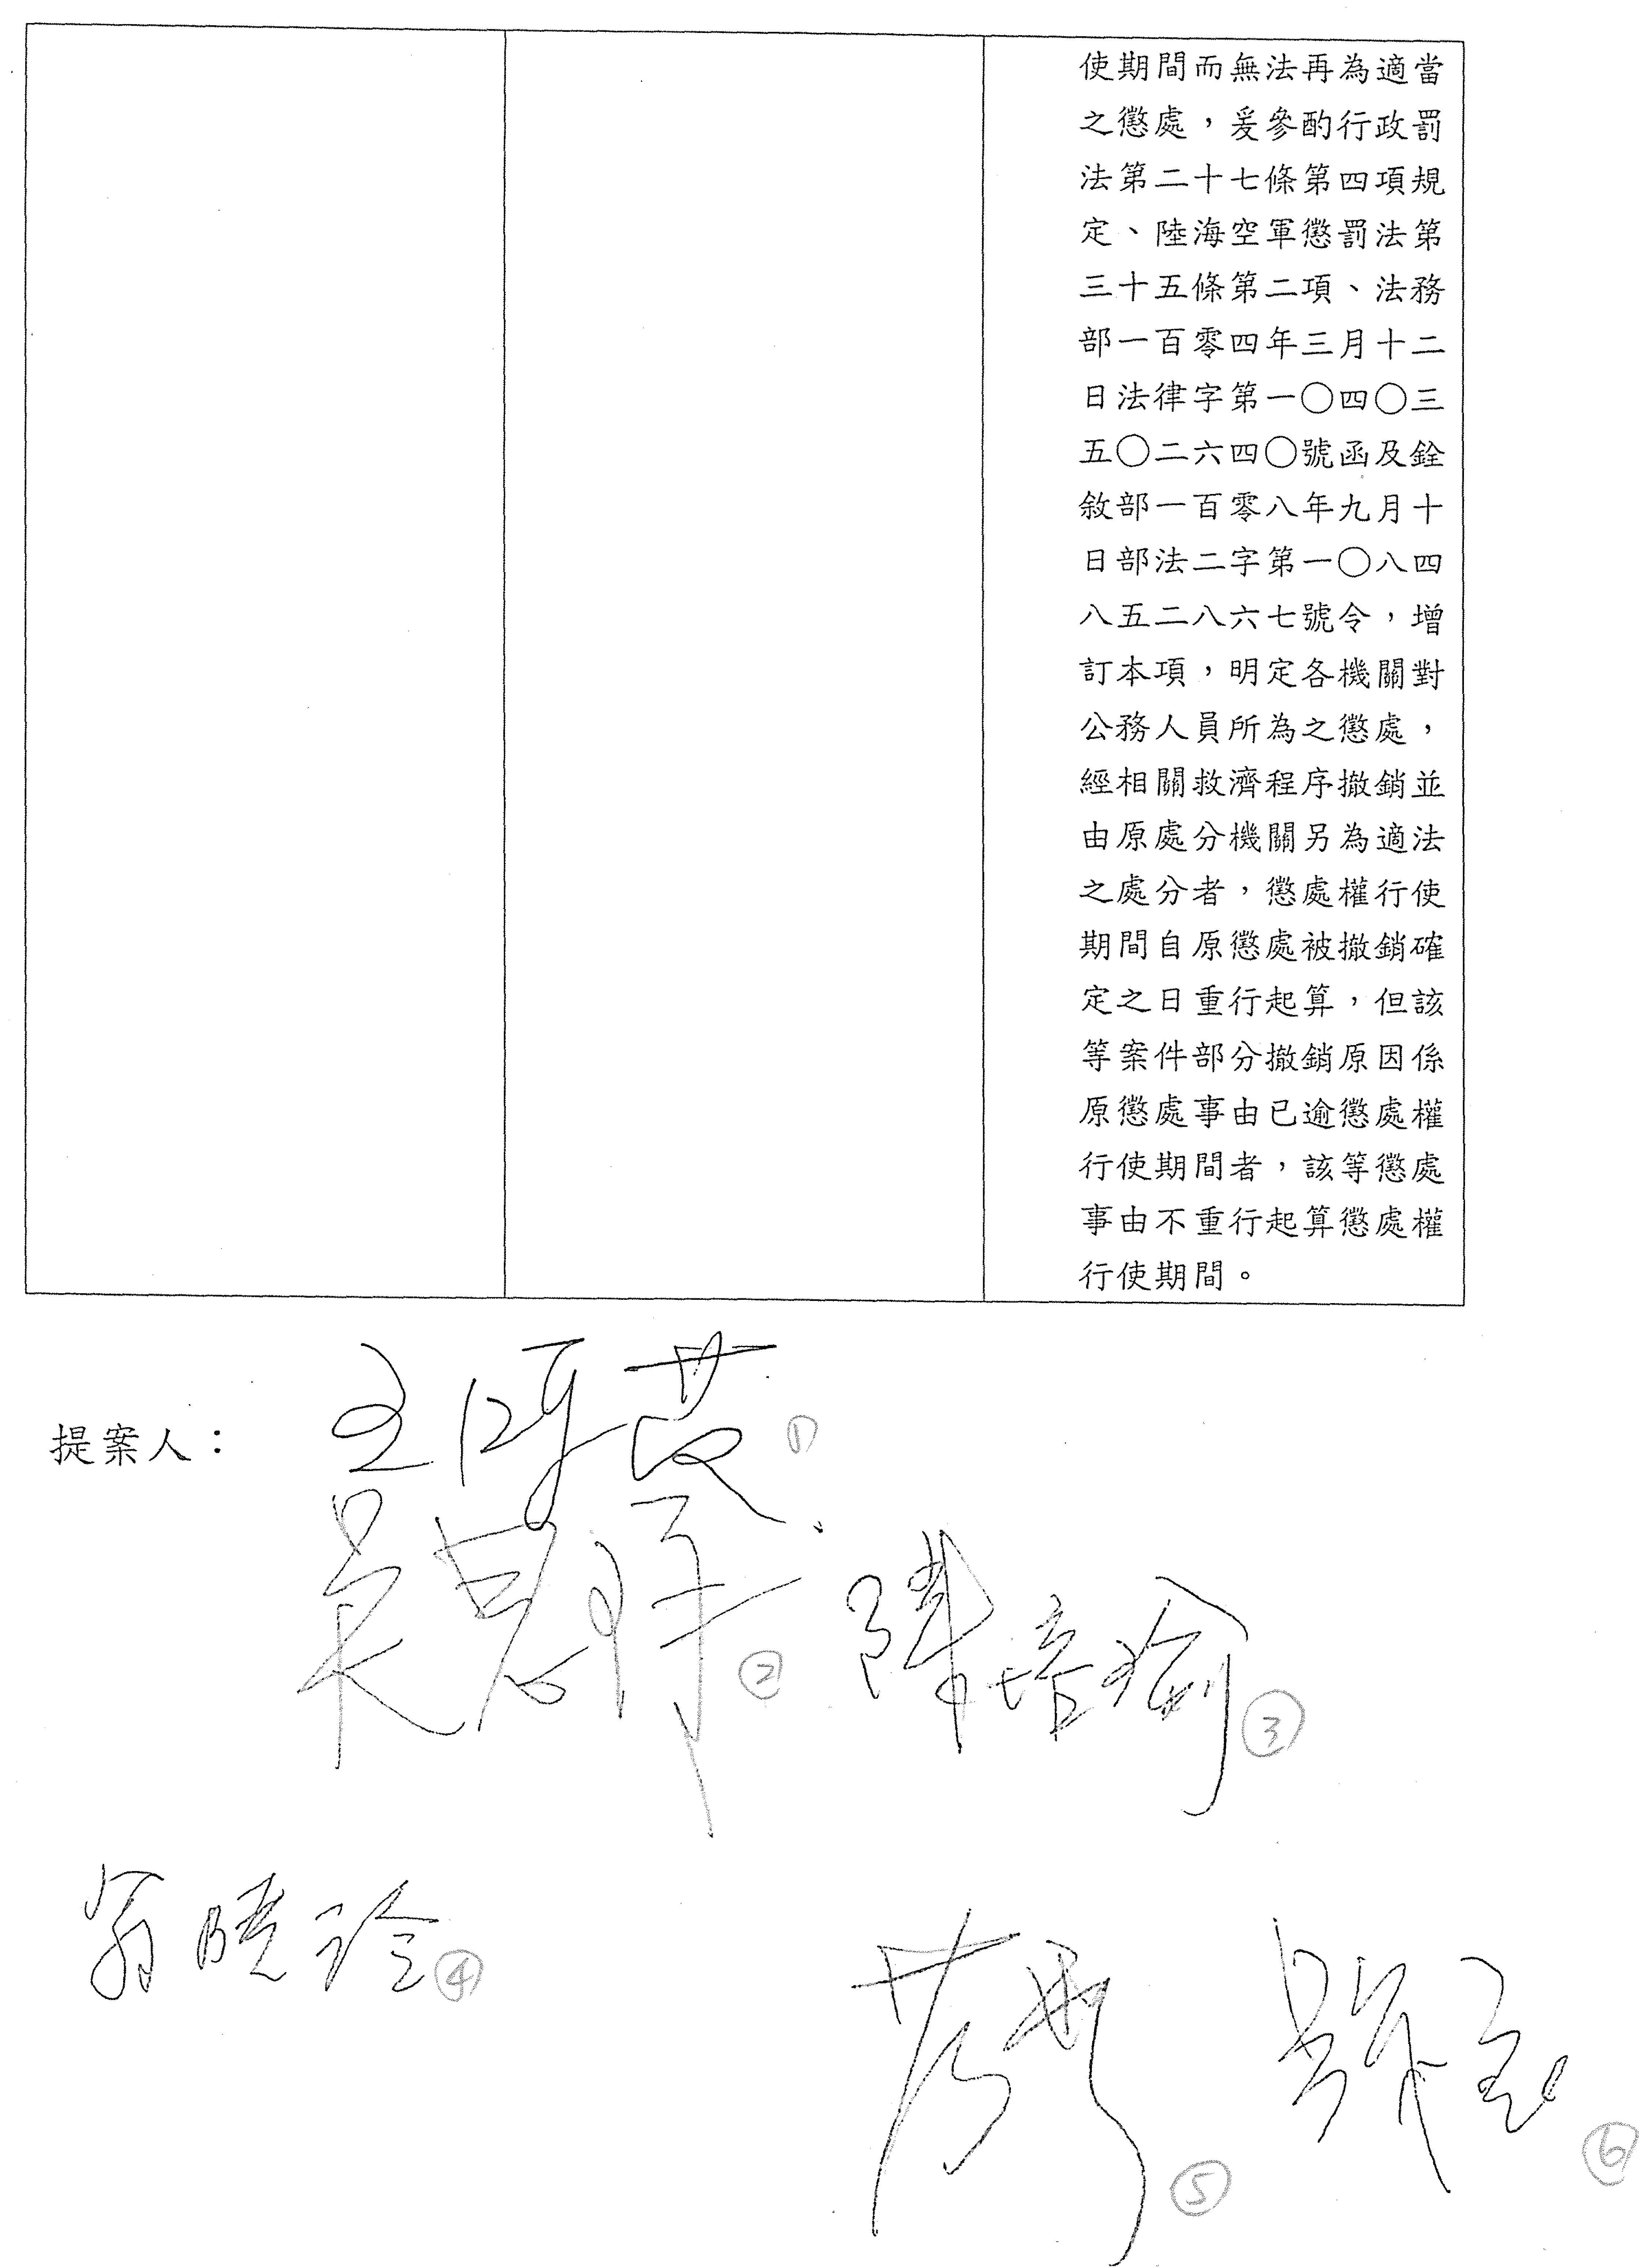 使期間而無法再為適當
之懲處，爰參酌行政罰
法第二十七條第四項規
定、陸海空軍懲罰法第
三十五條第二項、法務
部一百零四年三月十二
日法律字第一〇四〇三
五〇二六四〇號函及銓
敘部一百零八年九月十
日部法二字第一〇八四
八五二八六七號令，增
訂本項，明定各機關對
公務人員所為之懲處，
經相關救濟程序撤銷並
由原處分機關另為適法
之處分者，懲處權行使
期間自原懲處被撤銷確
定之日重行起算，但該
等案件部分撤銷原因係
原懲處事由已逾懲處權
行使期間者，該等懲處
事由不重行起算懲處權
行使期間。
提案人：
①
②
陳培瑜 ③
翁曉玲 ④
⑤
⑥